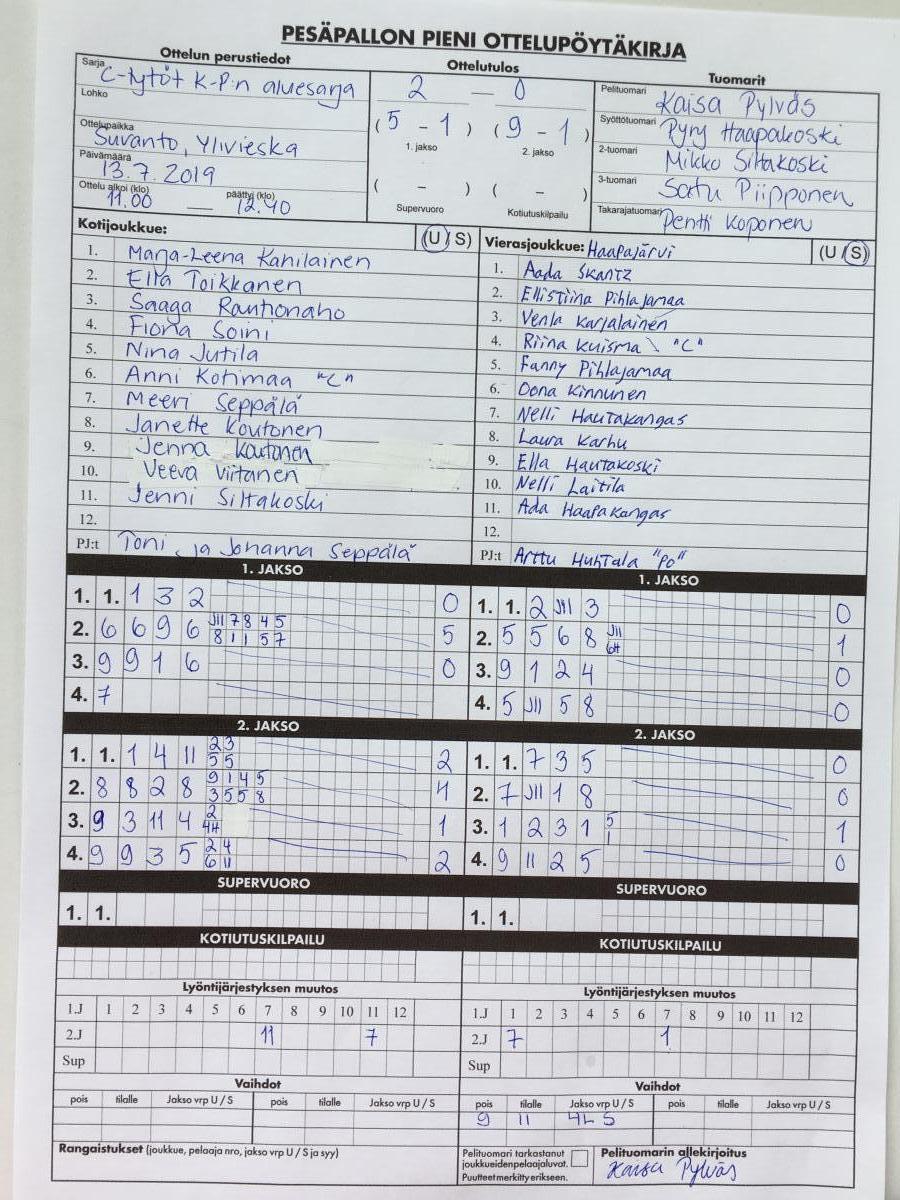 PESÄPALLON PIENI OTTELUPÖYTÄKIRJA
Ottelun perustiedot
Sarja C-tytöt K-P:n aluesarja
Lohko
Ottelupaikka Suvanto, Ylivieska
Päivämäärä 13.7.2019
Ottelu alkoi (klo) 11.00 — päättyi (klo) 12.40
Ottelutulos
2 — 0
(5 - 1) (9 - 1)
1. jakso 2. jakso
( - ) ( - )
Supervuoro Kotiutuskilpailu
Tuomarit
Pelituomari Kaisa Pylväs
Syöttötuomari Pyry Haapakoski
2-tuomari Mikko Siltakoski
3-tuomari Satu Piipponen
Takarajatuomari Pentti Koponen
Kotijoukkue: (U / S)
1. Marja-Leena Kahilainen
2. Ella Toikkanen
3. Saaga Rautionaho
4. Fiona Soini
5. Nina Jutila
6. Anni Kotimaa "C"
7. Meeri Seppälä
8. Janette Koutonen
9. Jenna Koutonen
10. Veeva Viitanen
11. Jenni Siltakoski
12.
PJ:t Toni ja Johanna Seppälä
Vierasjoukkue: Haapajärvi (U / S)
1. Aada Skantz
2. Ellistiina Pihlajamaa
3. Venla Karjalainen
4. Riina Kuisma "C"
5. Fanny Pihlajamaa
6. Oona Kinnunen
7. Nelli Hautakangas
8. Laura Karhu
9. Ella Hautakoski
10. Nelli Laitila
11. Ada Haapakangas
12.
PJ:t Arttu Huhtala "PO"
1. JAKSO
1. 1. 1 3 2 0
2. 6 6 9 6 JII 7 8 4 5 5
8 1 1 5 7
3. 9 9 1 6 0
4. 7
1. JAKSO
1. 1. 2 JII 3 0
2. 5 5 6 8 JII 1
3. 9 1 2 4 0
4. 5 JII 5 8 0
2. JAKSO
1. 1. 1 4 11 2 3 2
5 5
2. 8 8 2 8 9 1 4 5 4
3 5 5 8
3. 9 3 11 4 2 1
4. 9 9 3 5 2 4 2
6 11
2. JAKSO
1. 1. 7 3 5 0
2. 7 JII 1 8 0
3. 1 2 3 1 5 1
1
4. 9 11 2 5 0
SUPERVUORO
1. 1.
SUPERVUORO
1. 1.
KOTIUTUSKILPAILU
KOTIUTUSKILPAILU
Lyöntijärjestyksen muutos
1.J 1 2 3 4 5 6 7 8 9 10 11 12
2.J 11 7
Sup
Lyöntijärjestyksen muutos
1.J 1 2 3 4 5 6 7 8 9 10 11 12
2.J 7 1
Sup
Vaihdot
pois tilalle Jakso vrp U / S pois tilalle Jakso vrp U / S
Vaihdot
pois tilalle Jakso vrp U / S pois tilalle Jakso vrp U / S
9 11 4L S
Rangaistukset (joukkue, pelaaja nro, jakso vrp U / S ja syy)
Pelituomari tarkastanut
joukkueidenpelaajaluvat.
Puutteet merkitty erikseen.
Pelituomarin allekirjoitus
Kaisa Pylväs